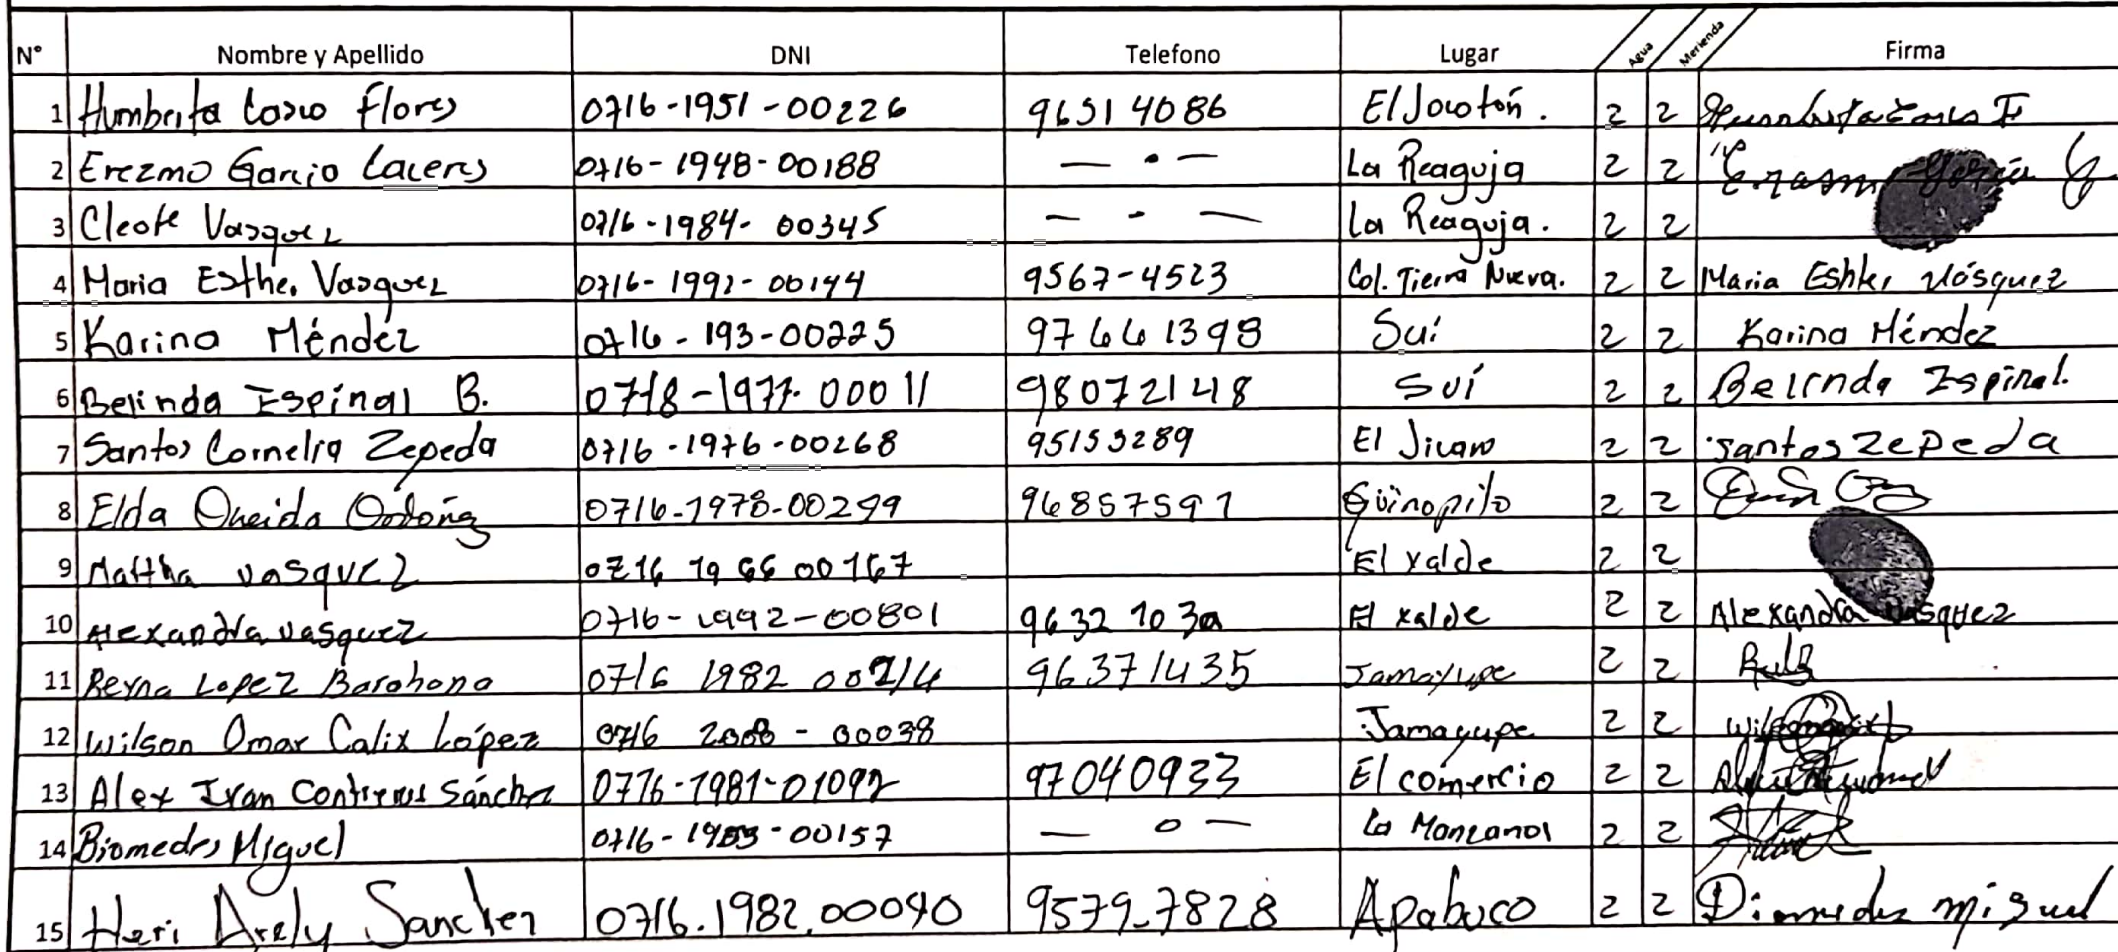 N° Nombre y Apellido DNI Telefono Lugar Agua Merienda Firma
1 Humberta Casco Flores 0716-1951-00226 96514086 El Jocotón. 2 2
2 Erezmo Garcio Laceres 0716-1948-00188 — • — La Reaguja 2 2 Erasmo García
3 Cleofe Vasquez 0716-1984-00345 — - — La Reaguja. 2 2
4 Maria Esther Vasquez 0716-1992-00144 9567-4523 Col. Tierra Nueva. 2 2 Maria Esther Vásquez
5 Karina Méndez 0716-193-00225 97661398 Suí 2 2 Karina Méndez
6 Belinda Espinal B. 0718-1977-00011 98072148 Suí 2 2 Belinda Espinal.
7 Santos Cornelia Zepeda 0716-1976-00268 95153289 El Jicaro 2 2 Santos Zepeda
8 Elda Oneida Ordoñez 0716-1978-00299 96857591 Güinopito 2 2
9 Martha vasquez 0716 1966 00167 El xalde 2 2
10 Alexandra vasquez 0716-1992-00801 9632 1030 El xalde 2 2 Alexandra vasquez
11 Reyna Lopez Barahona 0716 1982 00214 96371435 Jamayupe 2 2
12 Wilson Omar Calix López 0716 2008-00038 Jamayupe 2 2
13 Alex Ivan Contreras Sánchez 0716-1981-01092 97040933 El comercio 2 2
14 Diomedes Miguel 0716-1983-00157 — o — La Manzana 2 2
15 Heri Arely Sanchez 0716.1982.00090 9579-7828 Apabuco 2 2 Diomedes miguel